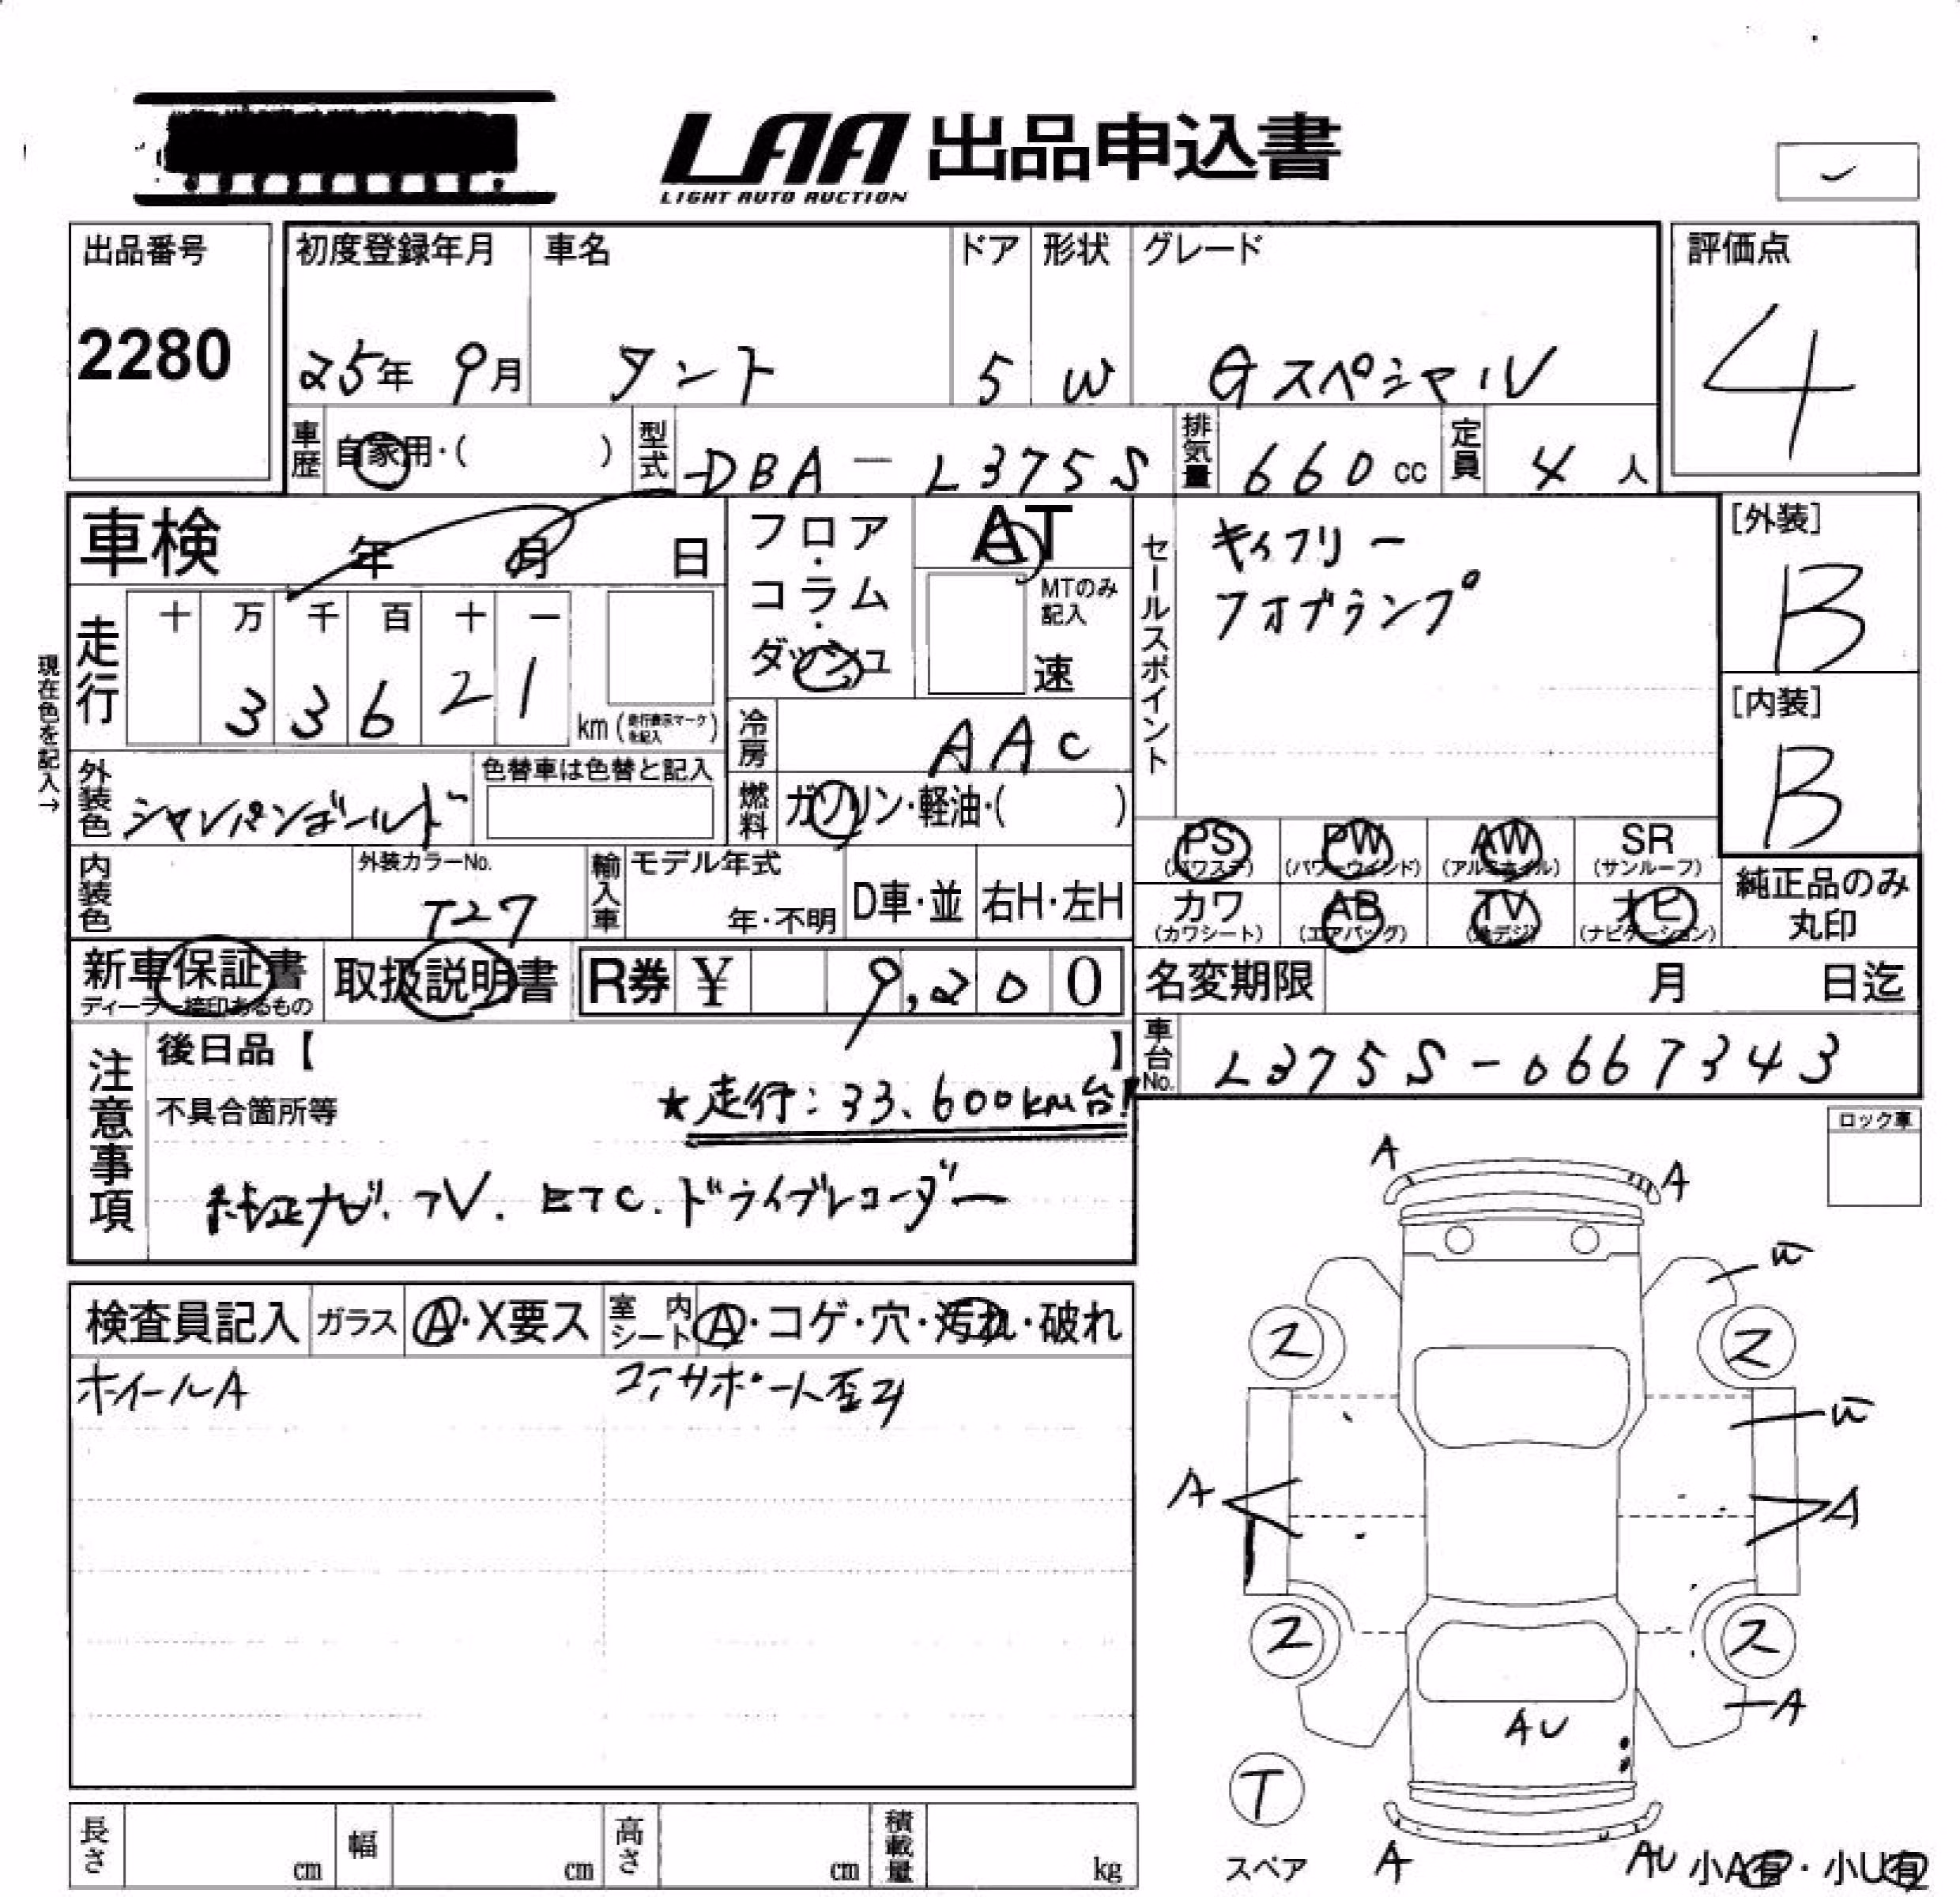 LAA 出品申込書
LIGHT AUTO AUCTION
出品番号
2280
初度登録年月 車名 ドア 形状 グレード
25年 9月 タント 5 W Gスペシャル
評価点
4
車歴 自家用・( ) 型式 DBA-L375S 排気量 660cc 定員 4人
車検 年 月 日
フロア・コラム・ダッシュ
AT
MTのみ記入
速
セールスポイント
キィフリー
フォグランプ
[外装]
B
[内装]
B
現在色を記入→
走行 十 万 千 百 十 一
3 3 6 2 1 km (走行表示マークを記入)
冷房 AAC
外装色 シャンパンゴールド
色替車は色替と記入
燃料 ガソリン・軽油・( )
PS (パワステ) PW (パワーウインド) AW (アルミホイル) SR (サンルーフ)
カワ (カワシート) AB (エアバッグ) TV (地デジ) ナビ (ナビゲーション)
純正品のみ
丸印
内装色 外装カラーNo. T27
輸入車 モデル年式 年・不明 D車・並 右H・左H
新車保証書
ディーラー捺印あるもの
取扱説明書 R券 ¥ 9,200
名変期限 月 日迄
車台No. L375S-0667343
注意事項
後日品【 】
不具合箇所等
★走行:33,600km台!
純正ナビ、TV、ETC、ドライブレコーダー
ロック車
検査員記入 ガラス A・X要ス 室内シート A・コゲ・穴・汚れ・破れ
ホイールA コアサポート歪み
A A
W
2 2
W
A A
2 2
A
AU
T
スペア
A AU 小A有・小U有
長さ cm 幅 cm 高さ cm 積載量 kg